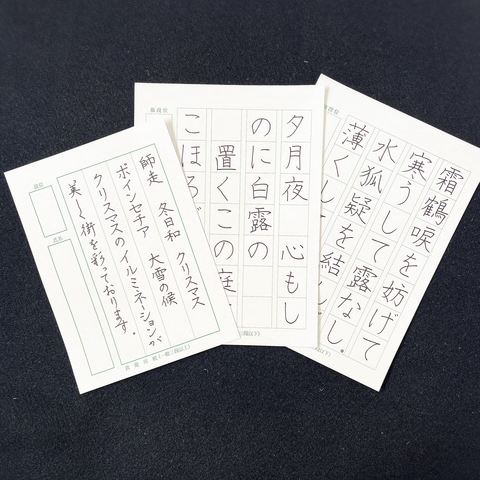 師走　冬日和　クリスマス
ポインセチア　大雪の候
クリスマスのイルミネーションが
美しく街を彩っております。
段位
氏名
夕月夜　心もし
のに白露の
置くこの庭に
こほろぎ
霜鶴唳を妨げて
寒うして露なし。
水狐疑を結んで
薄くして